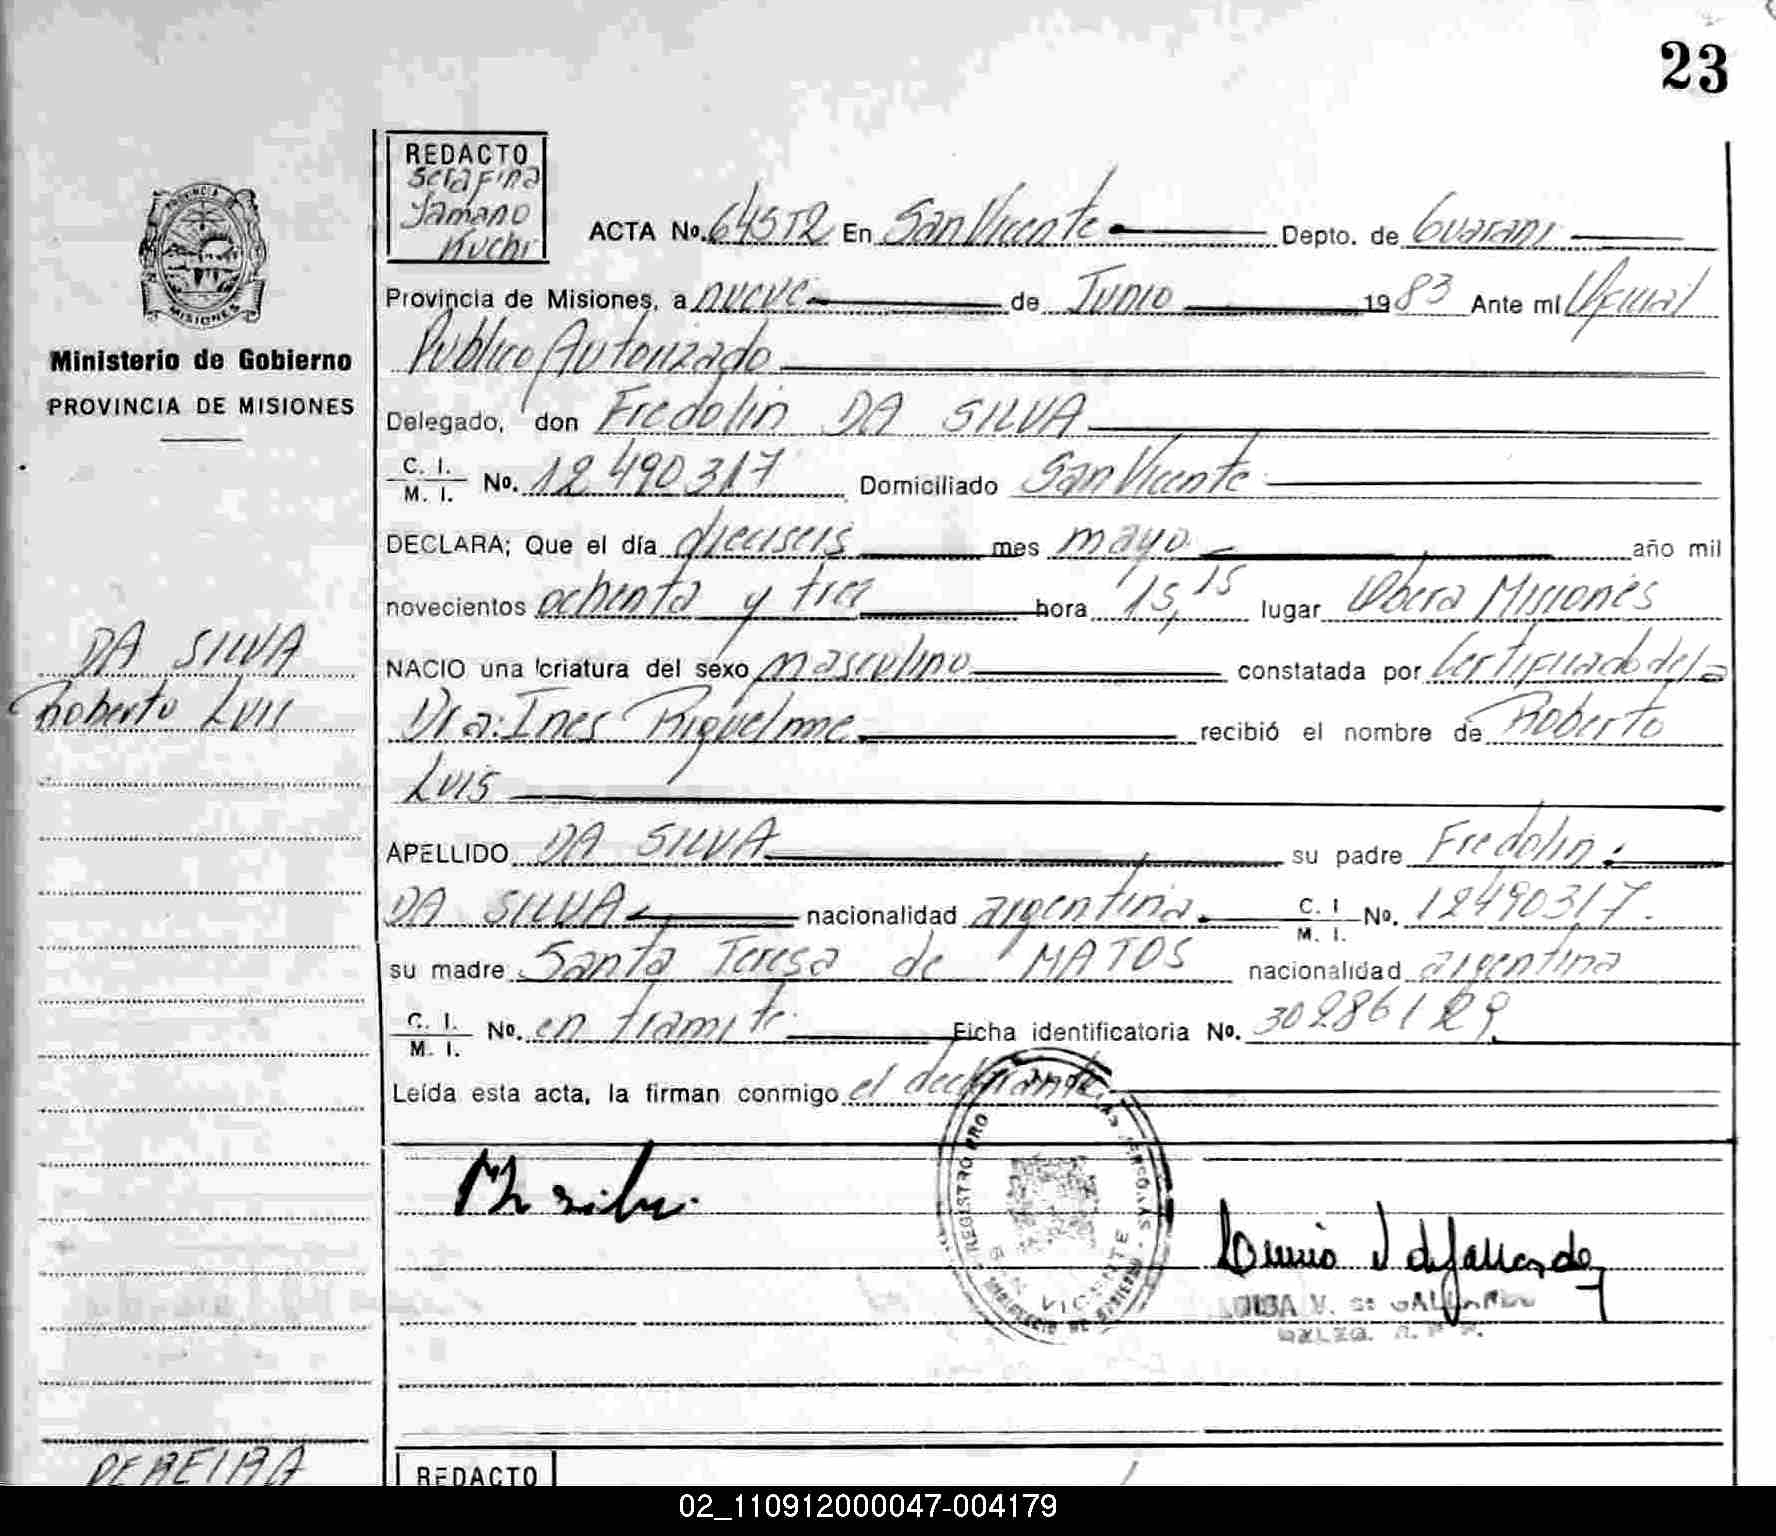 23
REDACTO
Serafina
Tamano
Kuchi
ACTA No. 645T2 En San Vicente Depto. de Guarani
PROVINCIA DE
MISIONES
Provincia de Misiones, a nueve de Junio 1983 Ante mí Oficial
Público Autorizado
Ministerio de Gobierno
PROVINCIA DE MISIONES
Delegado, don Fredolin DA SILVA
C. I.
M. I. No. 12490317 Domiciliado San Vicente
DECLARA; Que el día dieciseis mes mayo año mil
novecientos ochenta y tres hora 15,15 lugar Obera Misiones
DA SILVA
Roberto Luis
NACIO una criatura del sexo masculino constatada por Certificado de la
Dra: Ines Riquelme recibió el nombre de Roberto
Luis
APELLIDO DA SILVA su padre Fredolin
DA SILVA nacionalidad argentina C. I.
M. I. No. 12490317.
su madre Santa Teresa de MATOS nacionalidad argentina
C. I.
M. I. No. en tramite Ficha identificatoria No. 302861
Leída esta acta, la firman conmigo el declarante
REGISTRO PRO
SAN VICENTE
V. de GALLARDO
PEREIRA
REDACTO
02_110912000047-004179